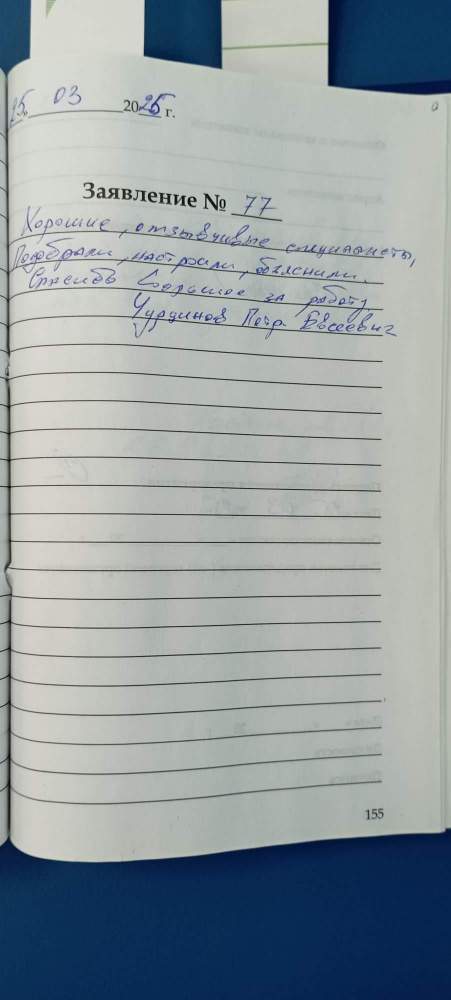 25. 03 2025 г.
Заявление № 77
Хорошие, отзывчивые специалисты,
Подобрали, настроили, объяснили.
Спасибо большое за работу.
Петр Евсеевич
155